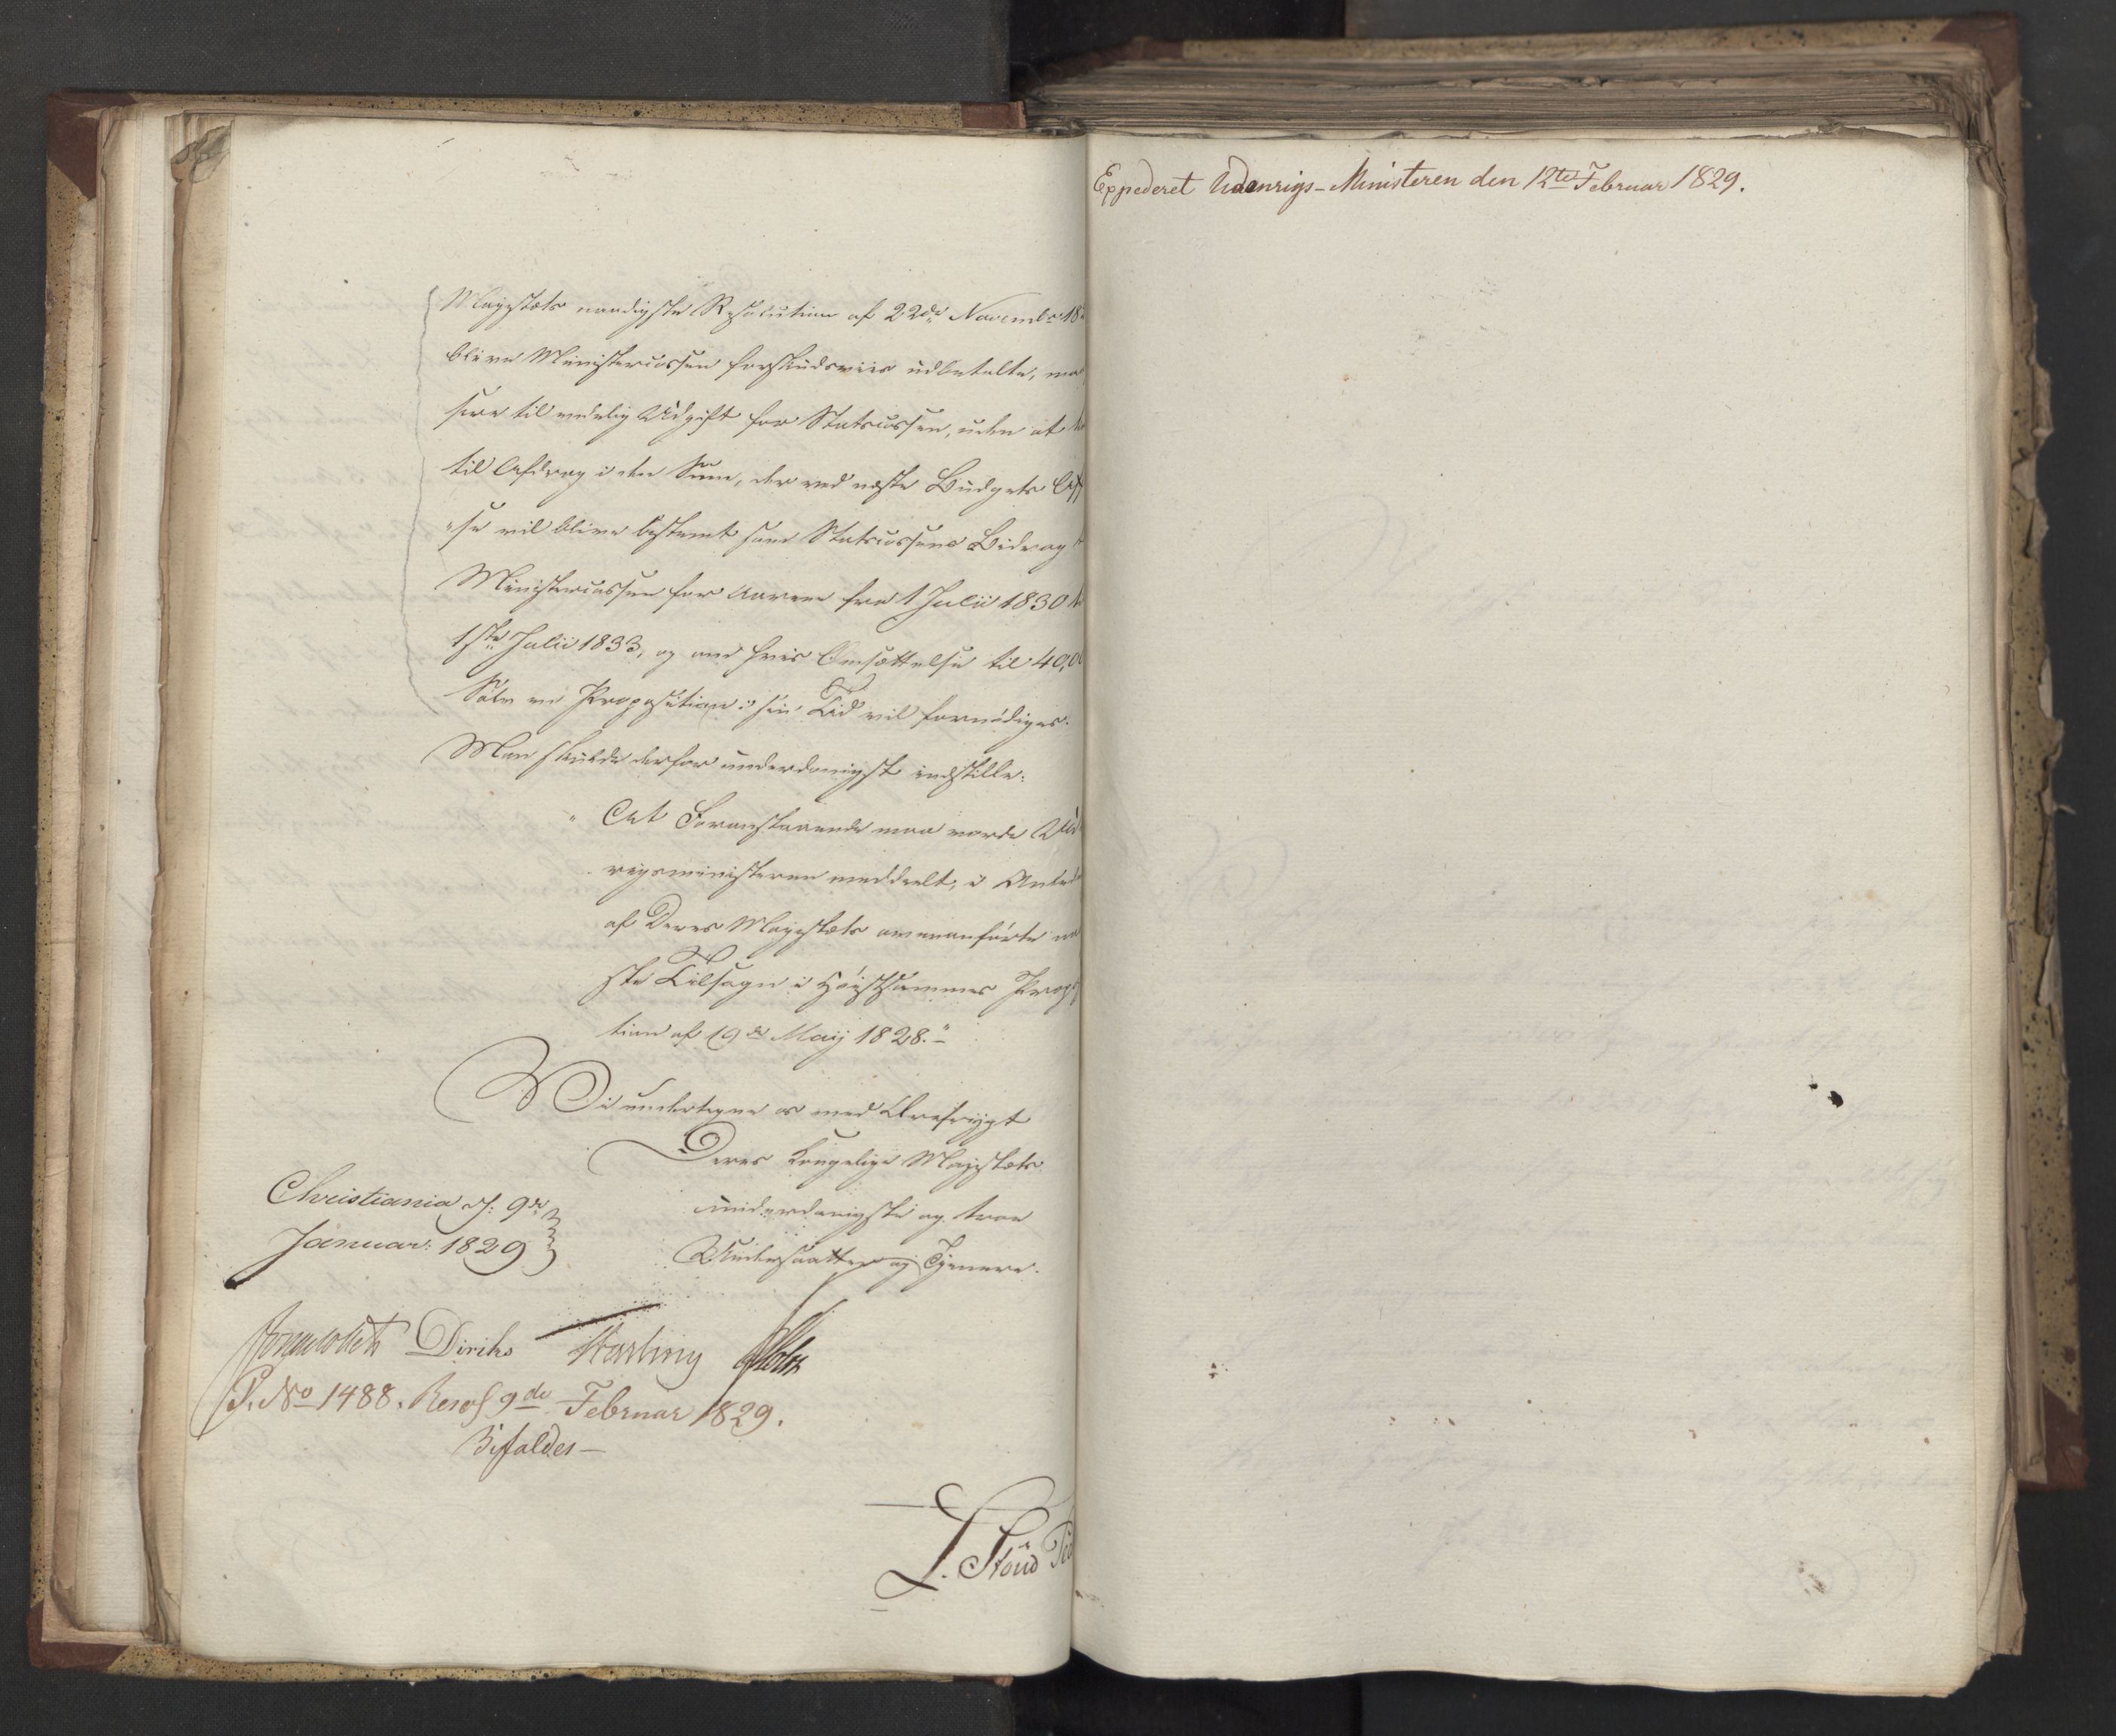 Majestæts naadigste Resolution af 22de Novembr 18
blive Ministercassen forskudsviis udbetalte, maa
føre til endelig Udgift for Statscassen, uden at
til Afdrag i den Sum, der ved næste Budgets
se vil blive bestemt som Statscassens Bidrag
Ministercassen for Aarene fra 1 Julii 1830
1ste Julii 1833, og om hvis Omsættelse til 40,0
Sølv en Proposition i sin Tid vil fornödiges.
Man skulde derfor underdanigst indstille:
"At Foranstaaende maa vorde Ud
rigsministeren meddeelt, i Anled
af Deres Majestæts ovenanførte na
ste Tilsagn i Høistsammes Propo
tion af 19de Maij 1828."
Vi undertegne os med Ærefrygt
Deres Kongelige Majestæts
underdanigste og troe
Undersaatter og Tjenere.
Christiania d. 9de
Januar: 1829
Sommerhielm Diriks Fasting Holst
P. No 1488. Resol 9de Februar 1829.
Bifaldes—
Expederet Udenrigs-Ministeren den 12te Februar 1829.